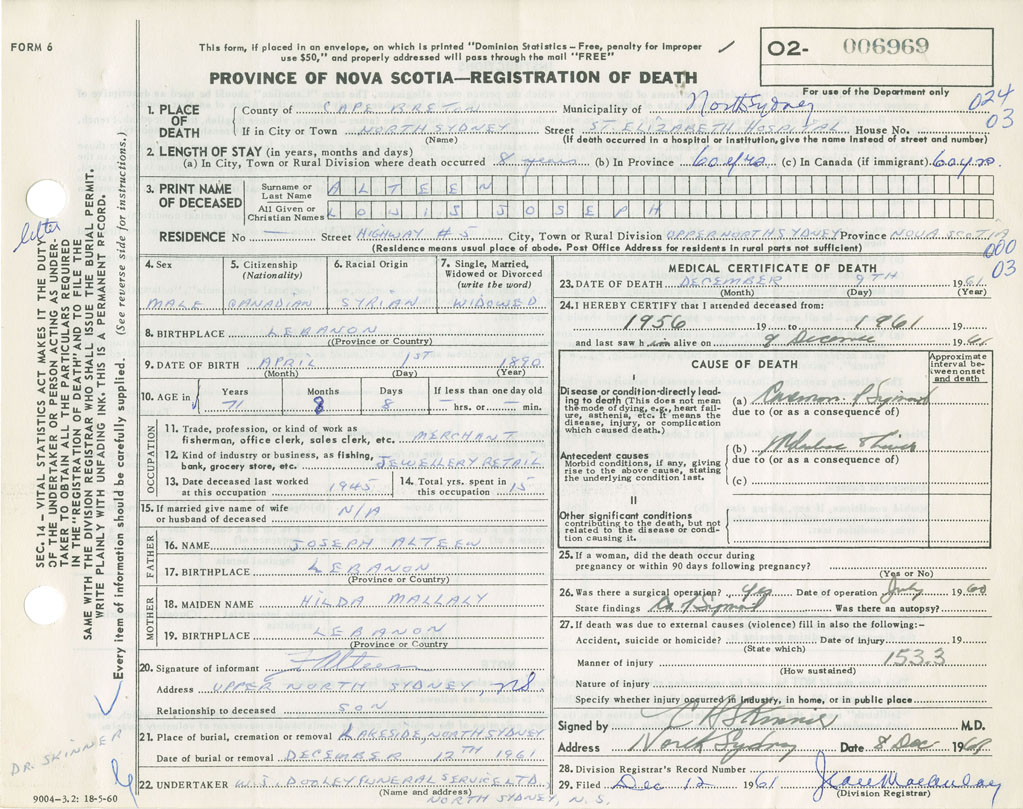 FORM 6
This form, if placed in an envelope, on which is printed "Dominion Statistics – Free, penalty for improper
use $50," and properly addressed will pass through the mail "FREE"
02- 006969
For use of the Department only
PROVINCE OF NOVA SCOTIA—REGISTRATION OF DEATH
024
03
1. PLACE OF DEATH
County of CAPE BRETN Municipality of North Sydney
If in City or Town NORTH SYDNEY Street ST ELIZABETH HOSPITAL House No.
(Name) (If death occurred in a hospital or institution, give the name instead of street and number)
2. LENGTH OF STAY (in years, months and days)
(a) In City, Town or Rural Division where death occurred 8 years (b) In Province 60 yrs (c) In Canada (if immigrant) 60 yrs.
3. PRINT NAME OF DECEASED
Surname or Last Name ALTEEN
All Given or Christian Names LOUIS JOSEPH
RESIDENCE No — Street HIGHWAY #5 City, Town or Rural Division UPPER NORTH SYDNEY Province NOVA SCOTIA
(Residence means usual place of abode. Post Office Address for residents in rural parts not sufficient)
000
03
4. Sex
MALE
5. Citizenship
(Nationality)
CANADIAN
6. Racial Origin
SYRIAN
7. Single, Married,
Widowed or Divorced
(write the word)
WIDOWED
8. BIRTHPLACE LEBANON
((Province or Country)
9. DATE OF BIRTH APRIL 1ST 1890
(Month) (Day) (Year)
10. AGE in
Years Months Days If less than one day old
71 8 8 — hrs. or — min.
OCCUPATION
11. Trade, profession, or kind of work as
fisherman, office clerk, sales clerk, etc. MERCHANT
12. Kind of industry or business, as fishing,
bank, grocery store, etc. JEWELLERY RETAIL
13. Date deceased last worked
at this occupation 1945
14. Total yrs. spent in
this occupation 15
15. If married give name of wife
or husband of deceased N/A
FATHER
16. NAME JOSEPH ALTEEN
17. BIRTHPLACE LEBANON
(Province or Country)
MOTHER
18. MAIDEN NAME HILDA MALLALY
19. BIRTHPLACE LEBANON
(Province or Country
20. Signature of informant
Address UPPER NORTH SYDNEY, NS.
Relationship to deceased SON
21. Place of burial, cremation or removal LAKESIDE, NORTH SYDNEY
Date of burial or removal DECEMBER 12TH 1961
22. UNDERTAKER W.J. DOOLEY FUNERAL SERVICE LTD.
(Name and address)
NORTH SYDNEY, N.S.
MEDICAL CERTIFICATE OF DEATH
23. DATE OF DEATH DECEMBER 9TH 1961
(Month) (Day) (Year)
24. I HEREBY CERTIFY that I attended deceased from:
1956 19 to 1961 19
and last saw him alive on 9 1961
CAUSE OF DEATH
Approximate
interval be-
tween onset
and death
I
Disease or condition directly lead-
ing to death (This does not mean
the mode of dying, e.g., heart fail-
ure, asthenia, etc. It means the
disease, injury, or complication
which caused death.)
(a)
due to (or as a consequence of)
Antecedent causes
Morbid conditions, if any, giving
rise to the above cause, stating
the underlying condition last.
(b)
due to (or as a consequence of)
(c)
II
Other significant conditions
contributing to the death, but not
related to the disease or condi-
tion causing it.
25. If a woman, did the death occur during
pregnancy or within 90 days following pregnancy?
(Yes or No)
26. Was there a surgical operation? Yes Date of operation July 1960
State findings Was there an autopsy?
27. If death was due to external causes (violence) fill in also the following:–
Accident, suicide or homicide? Date of injury 19
(State which)
Manner of injury 153.3
(How sustained)
Nature of injury
Specify whether injury occurred in Industry, in home, or in public place
Signed by M.D.
Address North Sydney Date 8 Dec 1961
28. Division Registrar's Record Number
29. Filed Dec 12 1961
(Division Registrar)
letter
SEC. 14 – VITAL STATISTICS ACT MAKES IT THE DUTY
OF THE UNDERTAKER OR PERSON ACTING AS UNDER-
TAKER TO OBTAIN ALL THE PARTICULARS REQUIRED
IN THE "REGISTRATION OF DEATH" AND TO FILE THE
SAME WITH THE DIVISION REGISTRAR WHO SHALL ISSUE THE BURIAL PERMIT.
WRITE PLAINLY WITH UNFADING INK. THIS IS A PERMANENT RECORD.
Every item of information should be carefully supplied. (See reverse side for instructions.)
DR. SKINNER
9004-3.2: 18-5-60